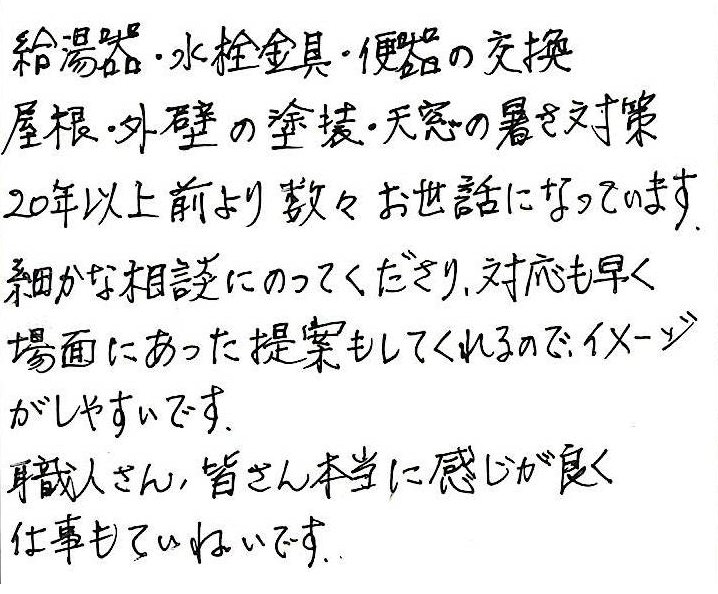 給湯器・水栓金具・便器の交換
屋根・外壁の塗装・天窓の暑さ対策
20年以上前より数々お世話になっています.
細かな相談にのってくださり、対応も早く
場面にあった提案もしてくれるので、イメージ
がしやすいです.
職人さん、皆さん本当に感じが良く
仕事もていねいです.